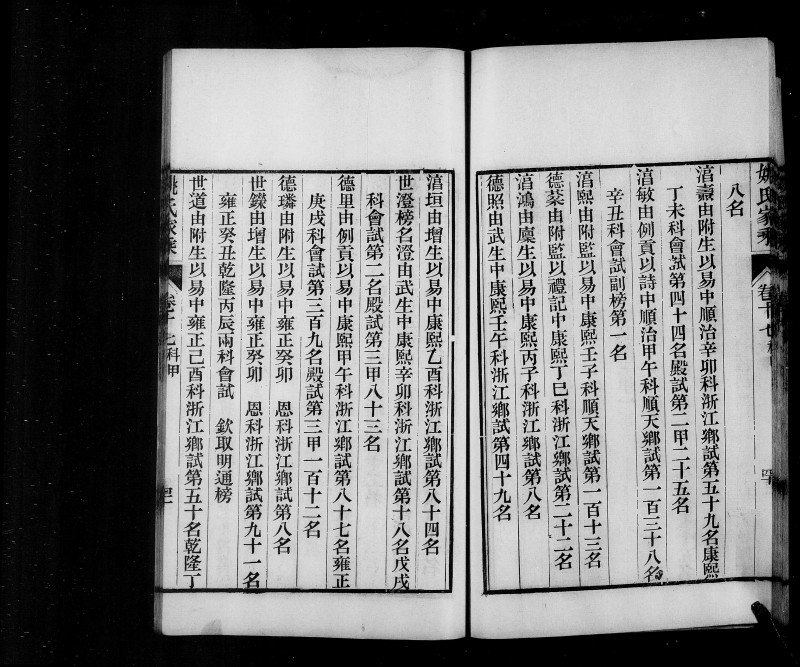 姚氏家乘
卷十七
八名
淯壽由附生以易中順治辛卯科浙江鄉試第五十九名康熙
丁未科會試第四十四名殿試第二甲二十五名
淯敏由例貢以詩中順治甲午科順天鄉試第一百三十八名
辛丑科會試副榜第一名
淯熙由附監以易中康熙壬子科順天鄉試第一百十三名
德蓁由附監以禮記中康熙丁巳科浙江鄉試第二十二名
淯鴻由廩生以易中康熙丙子科浙江鄉試第八名
德照由武生中康熙壬午科浙江鄉試第四十九名
淯垣由增生以易中康熙乙酉科浙江鄉試第八十四名
世澄榜名澄由武生中康熙辛卯科浙江鄉試第十八名戊戌
科會試第二名殿試第三甲八十三名
德里由例貢以易中康熙甲午科浙江鄉試第八十七名雍正
庚戌科會試第三百九名殿試第三甲一百十二名
德璘由附生以易中雍正癸卯　恩科浙江鄉試第八名
世鑅由增生以易中雍正癸卯　恩科浙江鄉試第九十一名
雍正癸丑乾隆丙辰兩科會試　欽取明通榜
世道由附生以易中雍正己酉科浙江鄉試第五十名乾隆丁
姚氏家乘
卷十七科甲